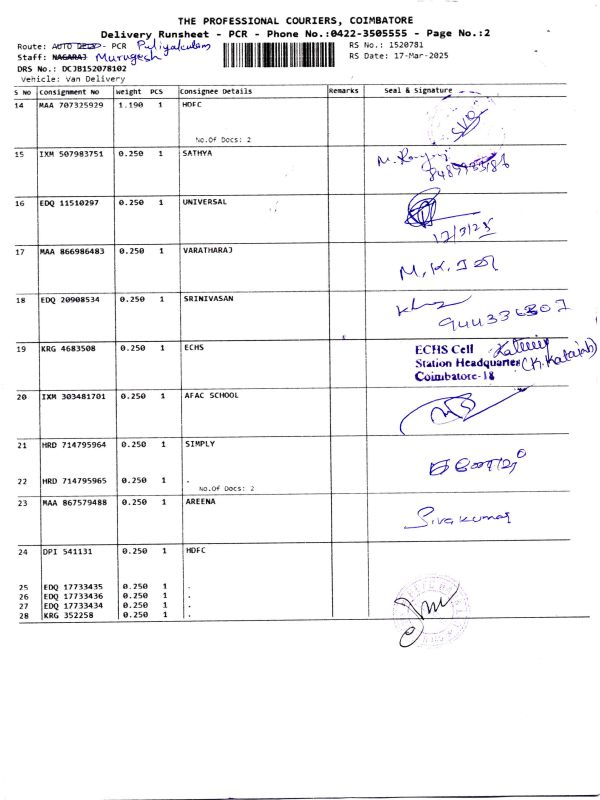 THE PROFESSIONAL COURIERS, COIMBATORE
Delivery Runsheet - PCR - Phone No.:0422-3505555 - Page No.:2
Route: AUTO - PCR Puliyakulam
RS No.: 1520781
Staff: NAGARAJ Murugesh
RS Date: 17-Mar-2025
DRS No.: DCJB152078102
Vehicle: Van Delivery
S No Consignment No Weight PCS Consignee Details Remarks Seal & Signature
14 MAA 707325929 1.190 1 HDFC
No.Of Docs: 2
15 IXM 507983751 0.250 1 SATHYA
16 EDQ 11510297 0.250 1 UNIVERSAL
17/3/25
17 MAA 866986483 0.250 1 VARATHARAJ
M. K.
18 EDQ 20908534 0.250 1 SRINIVASAN
19 KRG 4683508 0.250 1 ECHS
ECHS Cell
Station Headquarter
Coimbatore-18
20 IXM 303481701 0.250 1 AFAC SCHOOL
21 HRD 714795964 0.250 1 SIMPLY
22 HRD 714795965 0.250 1 .
No.Of Docs: 2
23 MAA 867579488 0.250 1 AREENA
Sivakumar
24 DPI 541131 0.250 1 HDFC
25 EDQ 17733435 0.250 1 .
26 EDQ 17733436 0.250 1 .
27 EDQ 17733434 0.250 1 .
28 KRG 352258 0.250 1 .